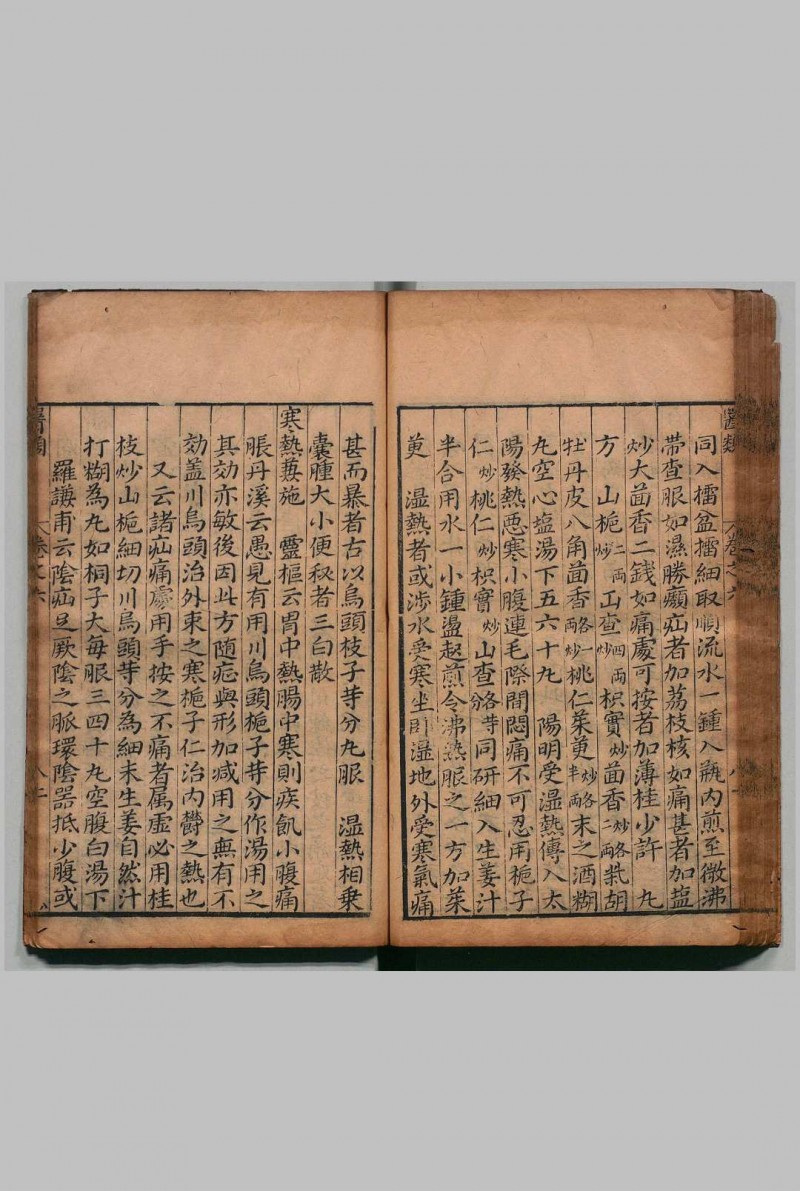 同入擂盆擂細取順流水一鍾入瓶内煎至微沸
帶查服如濕勝㿗疝者加荔枝核如痛甚者加盐
炒大茴香二錢如痛處可按者加薄桂少許　丸
方　山梔炒二兩山查炒四兩枳實炒茴香炒各二兩柴胡
牡丹皮八角茴香炒各一兩桃仁茱萸炒各半兩末之酒糊
丸空心塩湯下五六十丸　陽明受湿熱傳入太
陽發熱悪寒小腹連毛際間悶痛不可忍用梔子
仁炒桃仁炒枳實炒山查各等分同研細入生姜汁
半合用水一小鍾盪起煎令沸熱服之一方加茱
萸　湿熱者或涉水受寒坐卧湿地外受寒氣痛
甚而暴者古以烏頭枝子等分丸服　湿熱相乗
囊腫大小便秘者三白散
寒熱兼施　靈樞云胃中熱腸中寒則疾飢小腹痛
脹丹溪云愚見有用川烏頭梔子等分作湯用之
其効亦敏後因此方随症與形加减用之無有不
効盖川烏頭治外束之寒梔子仁治内鬱之熱也
又云諸疝痛處用手按之不痛者属虚必用桂
枝炒山梔細切川烏頭等分為細末生姜自然汁
打糊為丸如桐子大毎服三四十丸空腹白湯下
羅謙甫云陰疝足厥陰之脈環陰器抵少腹或